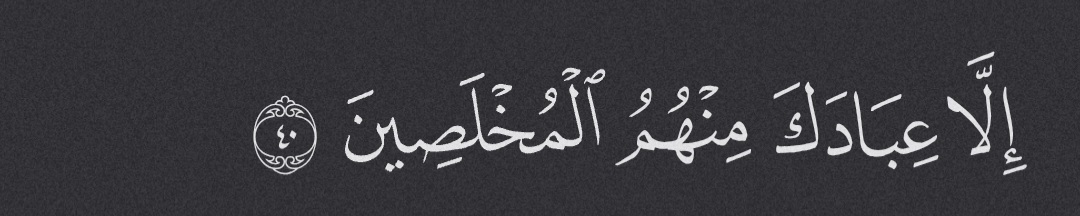 إِلَّا عِبَادَكَ مِنْهُمُ ٱلْمُخْلَصِينَ ٤٠